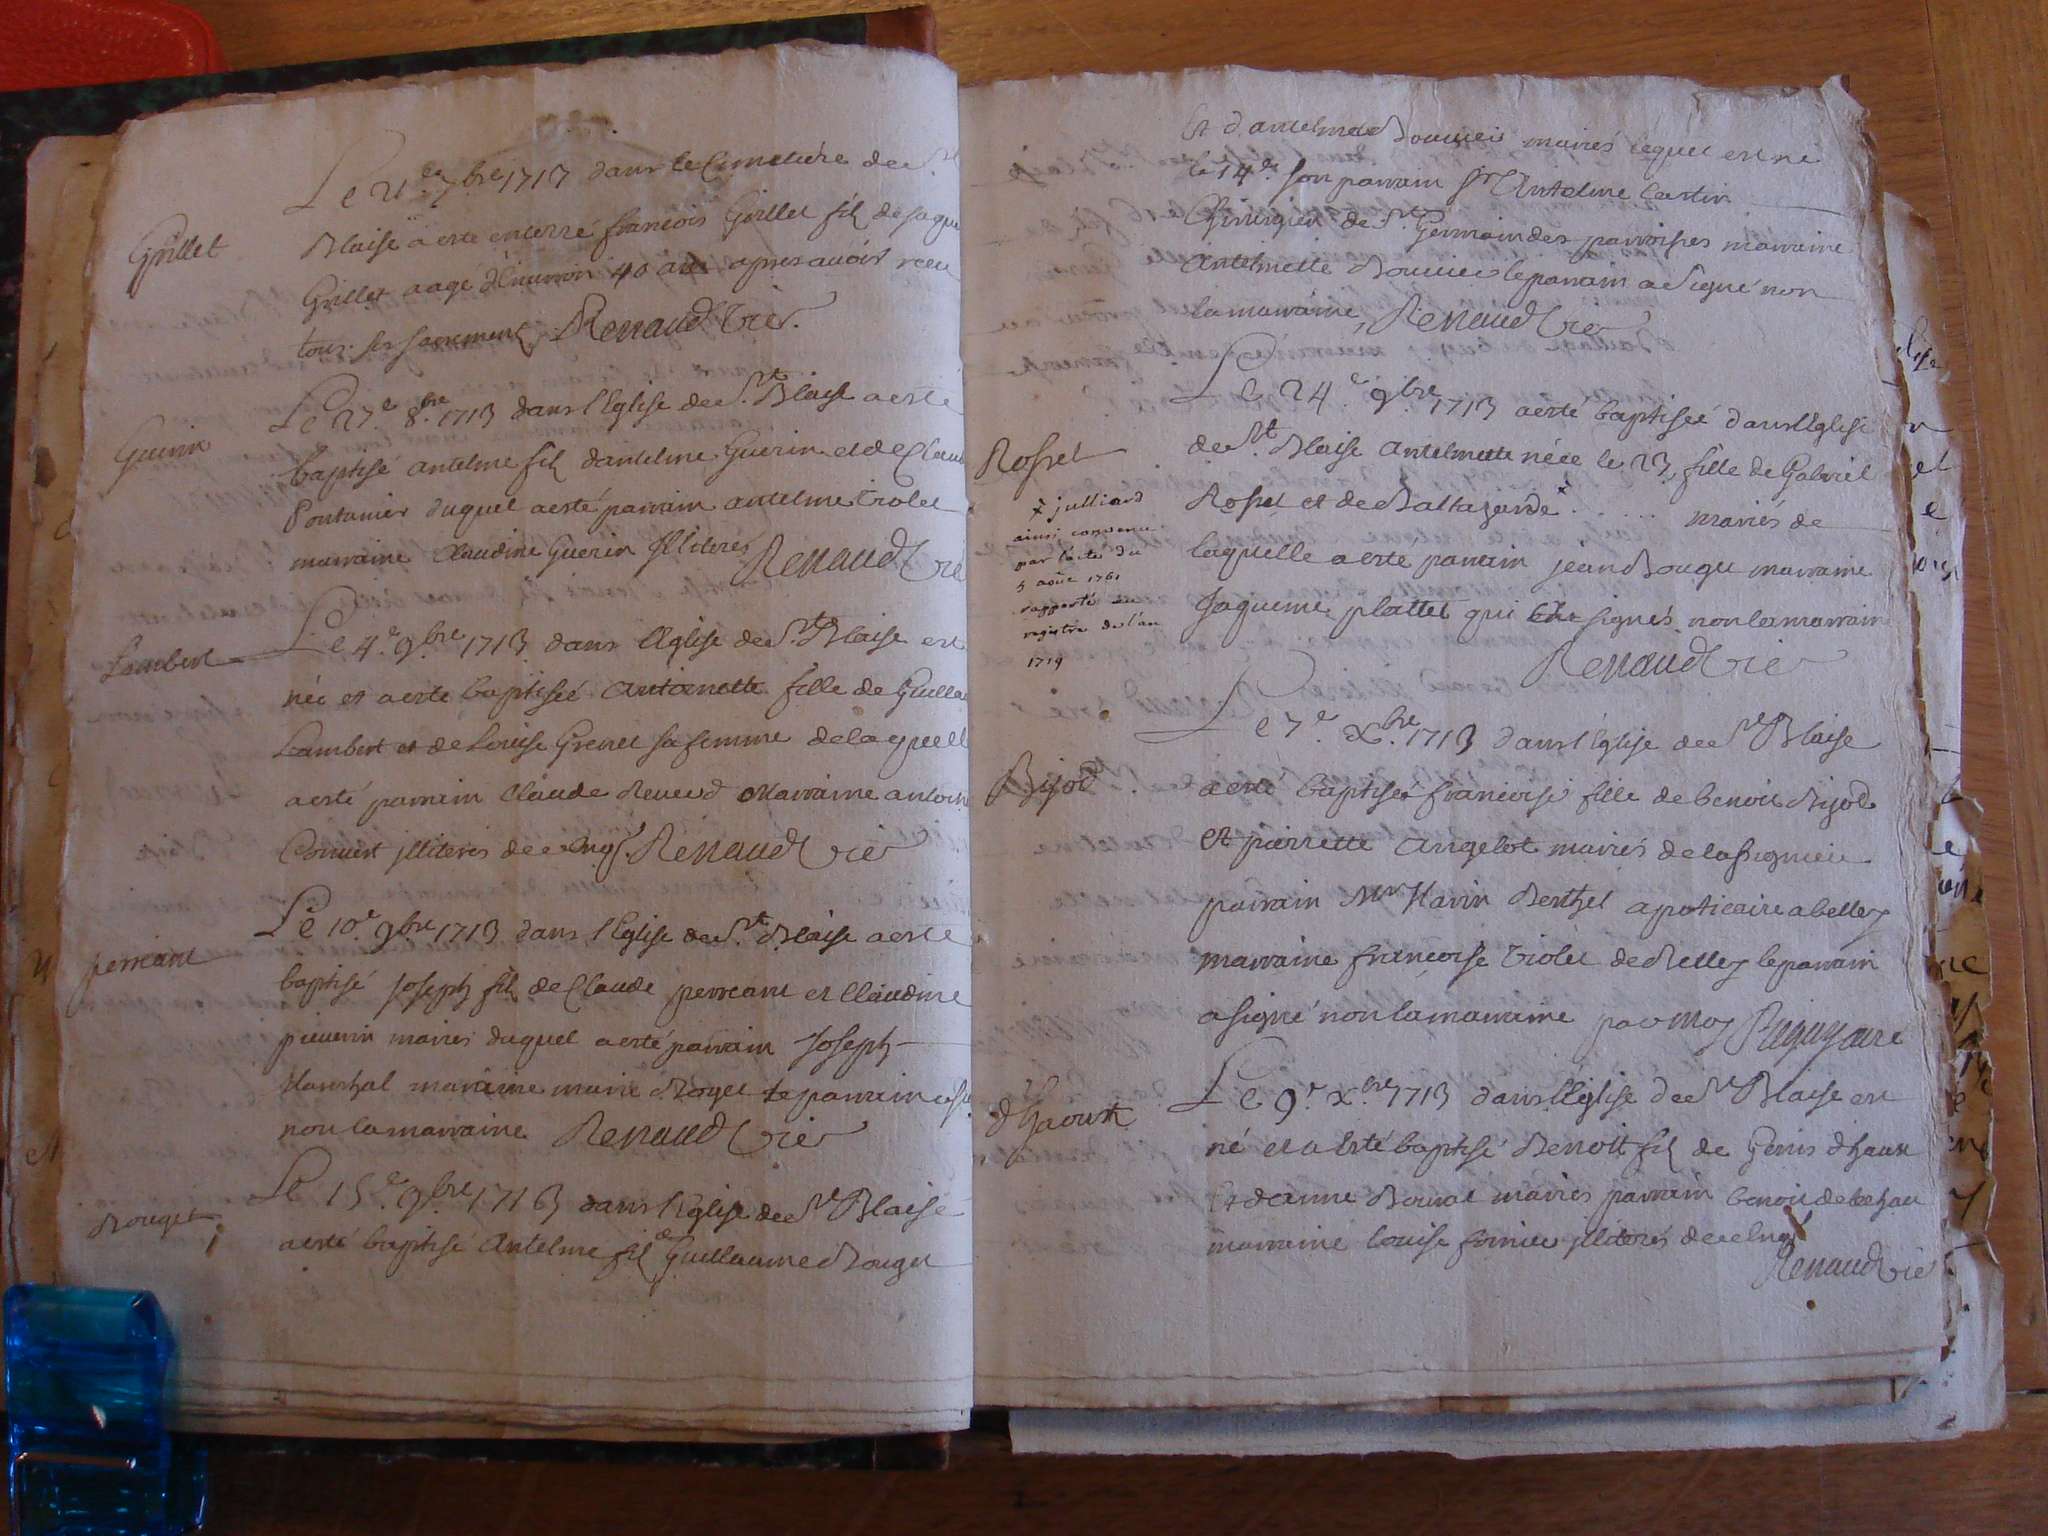 Grillet
Le 21e 7bre 1713 dans le Cimetiére de St
Blaise a esté enterré francois Grillet fils de Jaque
Grillet aagé d'Environ 40 ans apres avoir receu
tous ses sacrements Renaud vic.
Guerin
Le 27e 8bre 1713 dans l'Eglise de St Blaise a esté
baptisé antelme fils d'antelme Guerin et de Claud
Pontanier duquel a esté parrain antelme violet
marraine Claudine Guerin illiterés Renaud vic
Lambert
Le 4e 9bre 1713 dans l'Eglise de St Blaise est
née et a esté baptiseé Antoinette fille de Guilla
Lambert et de Louise Grenet sa femme de laquelle
a esté parrain Claude Marraine antoin
illiterés Renaud vic
perreant
Le 10e 9bre 1713 dans l'Eglise de St Blaise a esté
baptisé Joseph fils de Claude perreant et Claudine
mariés duquel a esté parrain Joseph
Marechal maraine marie Roget le parrain
non la marraine Renaud vic
Rouget
Le 15e 9bre 1713 dans l'Eglise de St Blaise
a esté baptisé Antelme fils de Guillaume Rouget
Et d'antelme Bouvier mariés lequel est né
le 14e son parrain Sr Antelme
Chirurgien de St Germain des parroisses marraine
Antelmette Bouvier le parrain a signé non
la marraine, Renaud vic
Rosset
Le 24e 9bre 1713 a esté baptiseé dans l'Eglise
de St Blaise Antelmette née le 23, fille de Gabriel
Rosset et de Baltazarde x . . . . . mariés de
laquelle a esté parrain jean Rouget marraine
Jaqueme plattet qui signés non la marraine
Renaud vic
x julliard
ainsi convenu
par l'acte du
5 aout 1761
rapporté au
registre de l'an
1719
Bijod
Le 7e Xbre 1713 dans l'Eglise de St Blaise
a esté baptiseé francoise fille de benoit Bijod
et pierrette Angelot mariés de lassignieu
parrain Mr Berthet apoticaire a belley
marraine francoise violet de Belley le parrain
a signé non la marraine par moy
d'haoust
Le 9e Xbre 1713 dans l'Eglise de St Blaise est
né et a Esté baptisé Benoit fils de Genis d'haoust
Et d'anne mariés parrain benoit
marraine louise illiterés
Renaud vic